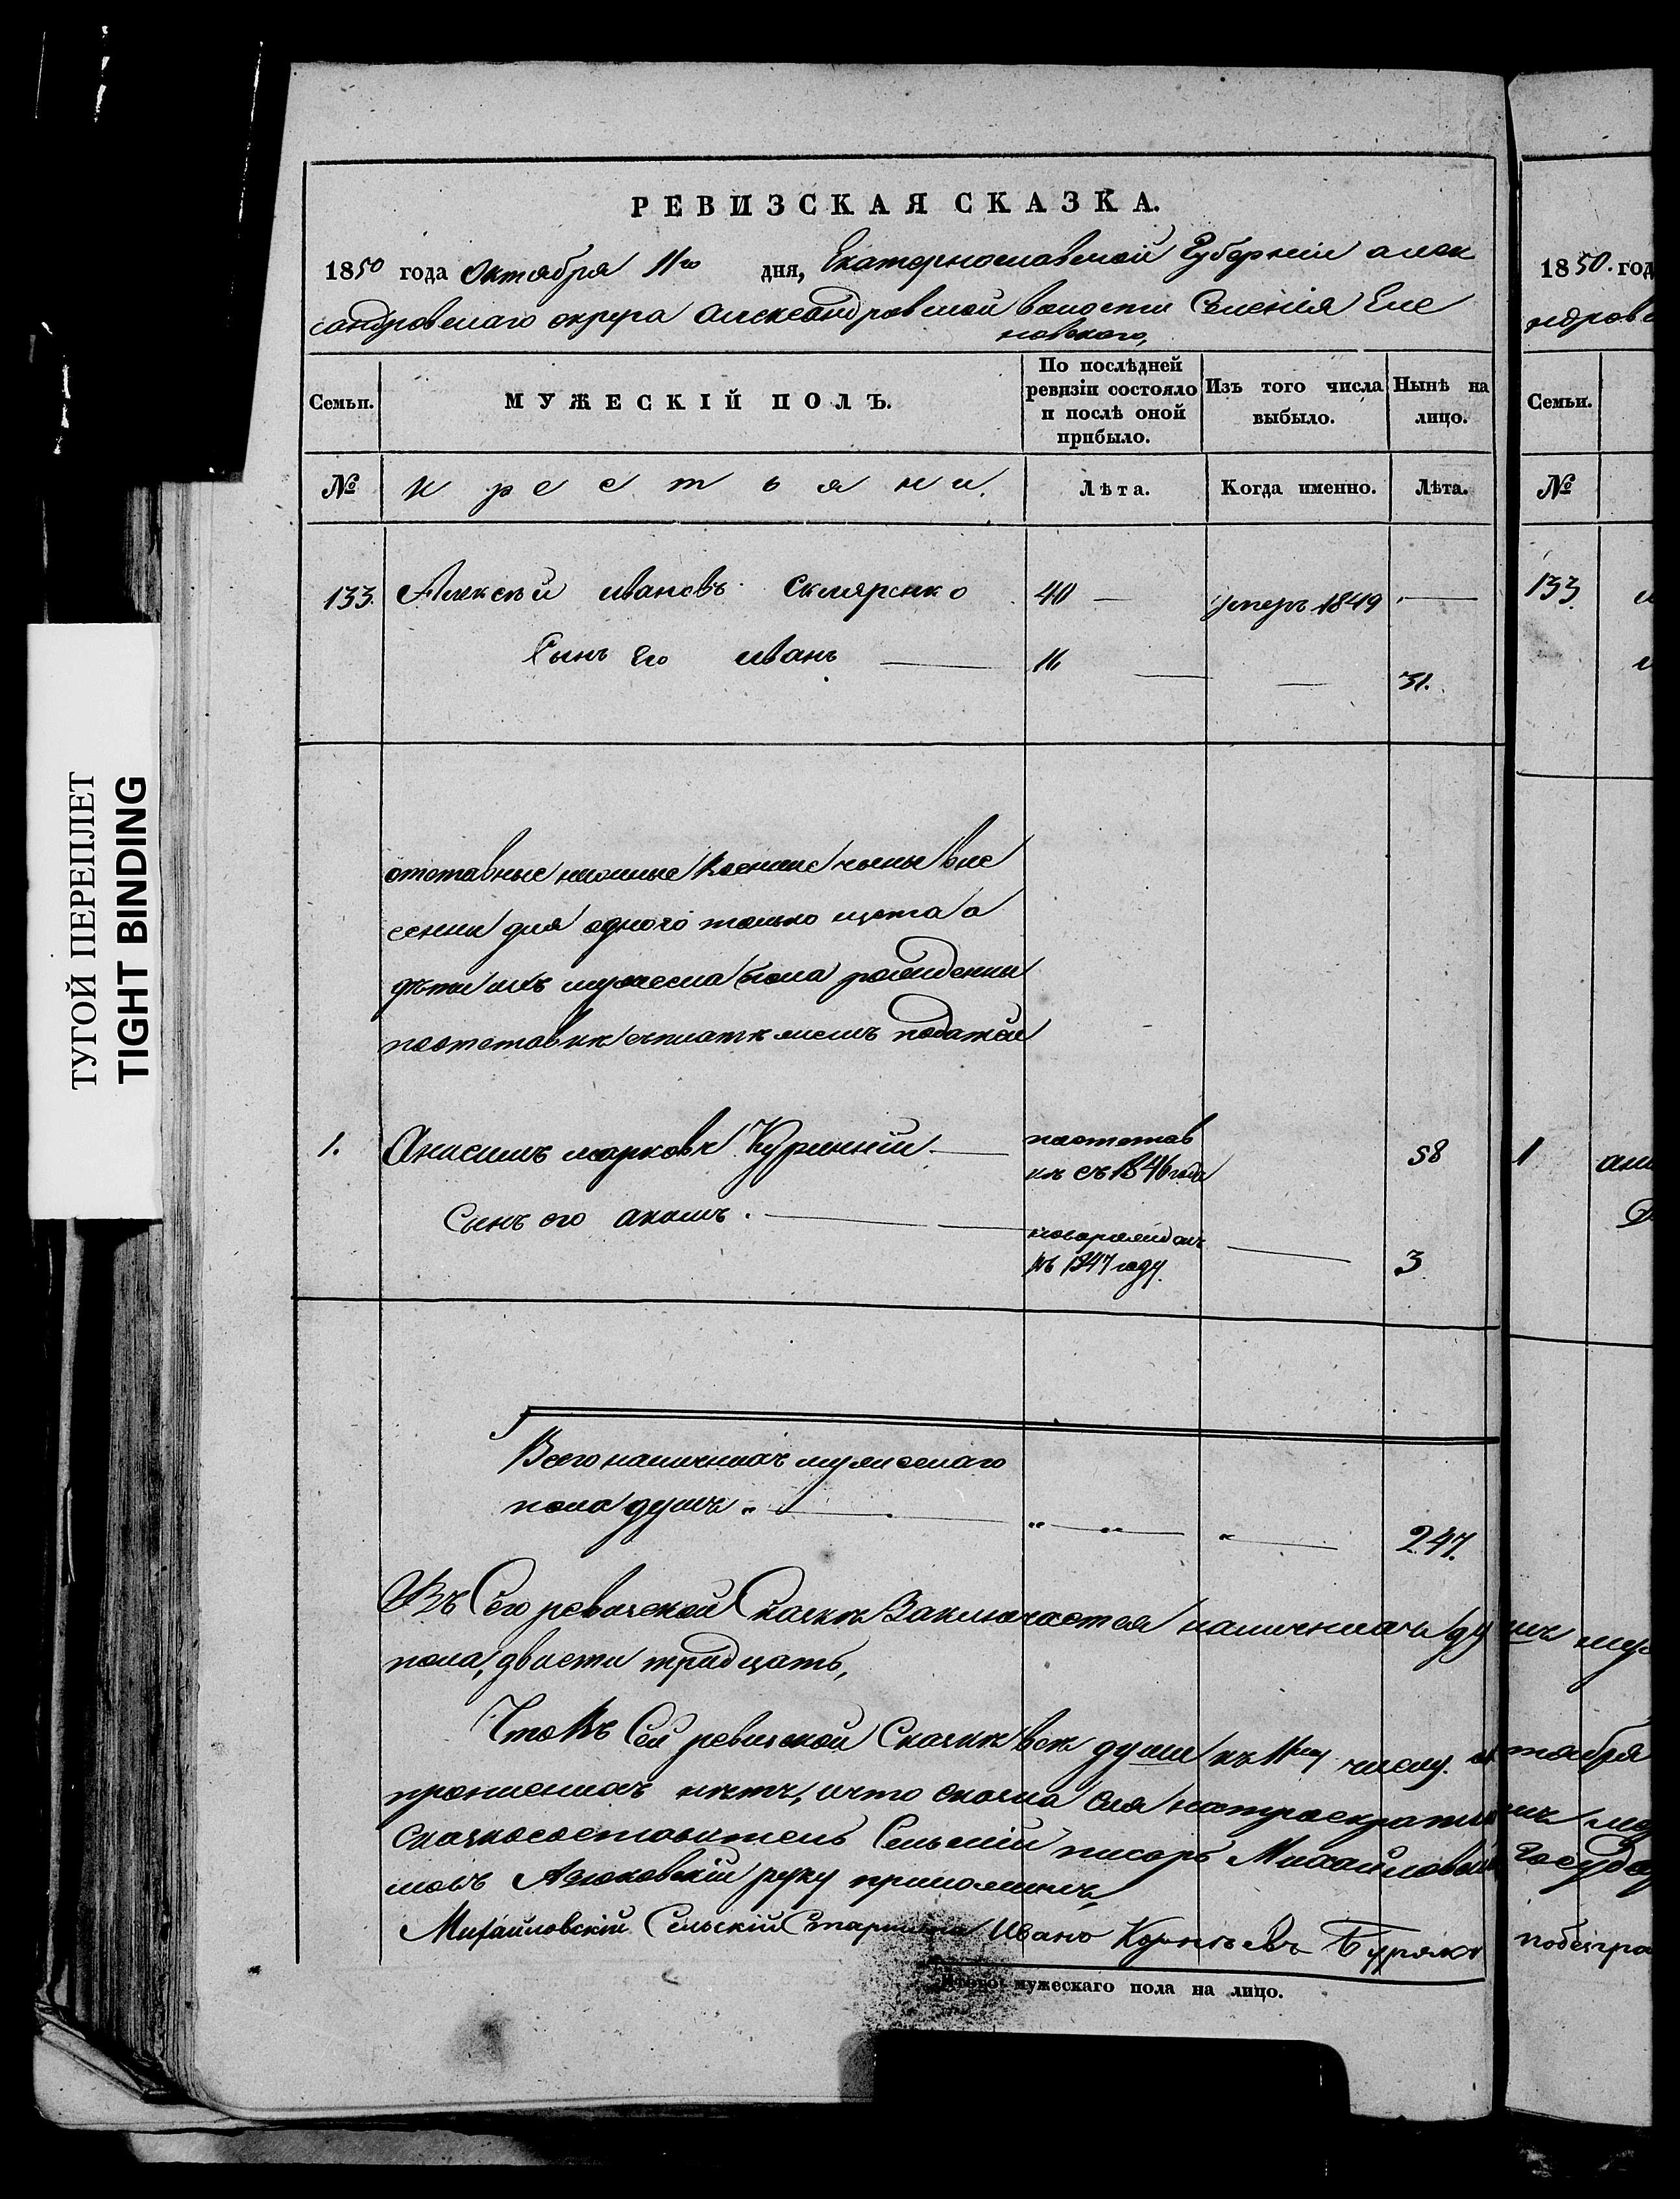 РЕВИЗСКАЯ СКАЗКА.
1850 года Октября 11го дня, Екатеринославской Губерніи алек
сандровскаго округа Александровской волости Селенія Еле
новского,
Семьи. МУЖЕСКІЙ ПОЛЪ. По послѣдней ревизіи состояло и послѣ оной прибыло. Изъ того числа выбыло. Нынѣ на лицо.
№ крестьяни. Лѣта. Когда именно. Лѣта.
133. Алексѣй Ивановъ Скляренко 40 — умеръ 1849 —
Сынъ Его Иванъ — 16 — — 31.
отставные нижніе Военные чины вне
сенны для одного только щета а
дѣти ихъ мужеска пола рожденни
поотставкѣ
1. Анисимъ марковъ Куринній — поотстав
кѣ съ 1846 года 58
Сынъ его — новорожденъ
въ 1847 году. — 3
Всего наличнихъ мужескаго
пола душъ „ — „ — „ — „ — 247.
Въ Сего ревизской Сказкѣ Заключается наличнихъ душъ муж
пола, двести тридцать,
Что Въ Сей ревизской Сказкѣ всѣ души къ 11му числу октября
нѣтъ, ичто сказка сия
Сказкосоставитель Сельскій писарь Михайловскій Госуда
руку приложилъ,
Михайловскій Сельскій Старшина Иванъ Корнѣевъ Бурякъ
Итого мужескаго пола на лицо.
1850. год
ндровс
Семьи.
№
133
1
ТУГОЙ ПЕРЕПЛЕТ
TIGHT BINDING